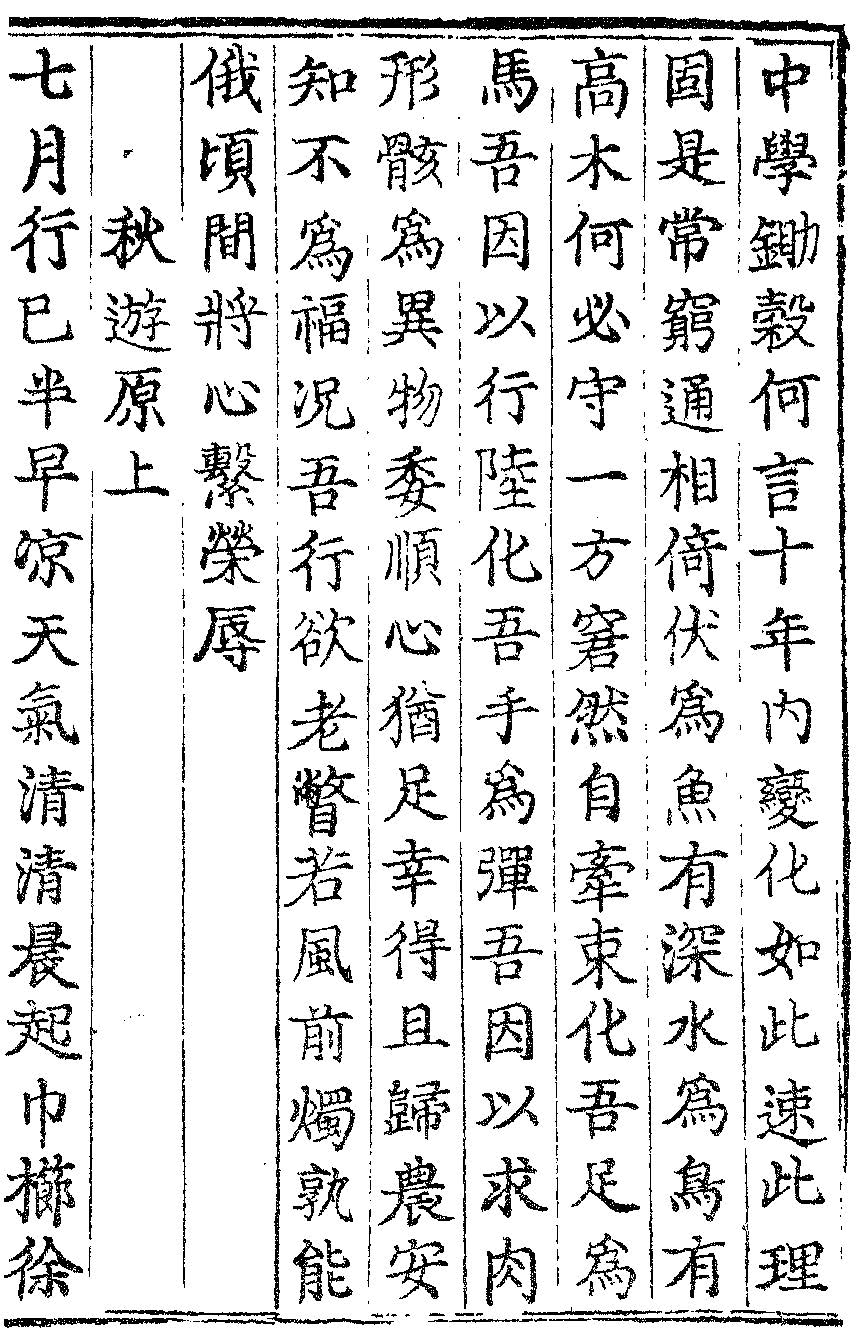 中學鋤穀何言十年內變化如此速此理
固是常窮通相倚伏為魚有深水為鳥有
高木何必守一方窘然自牽束化吾足為
馬吾因以行陸化吾手為彈吾因以求肉
形骸為異物委順心猶足幸得且歸農安
知不為福況吾行欲老瞥若風前燭孰能
俄頃間將心繫榮辱
秋遊原上
七月行已半早凉天氣清清晨起巾櫛徐